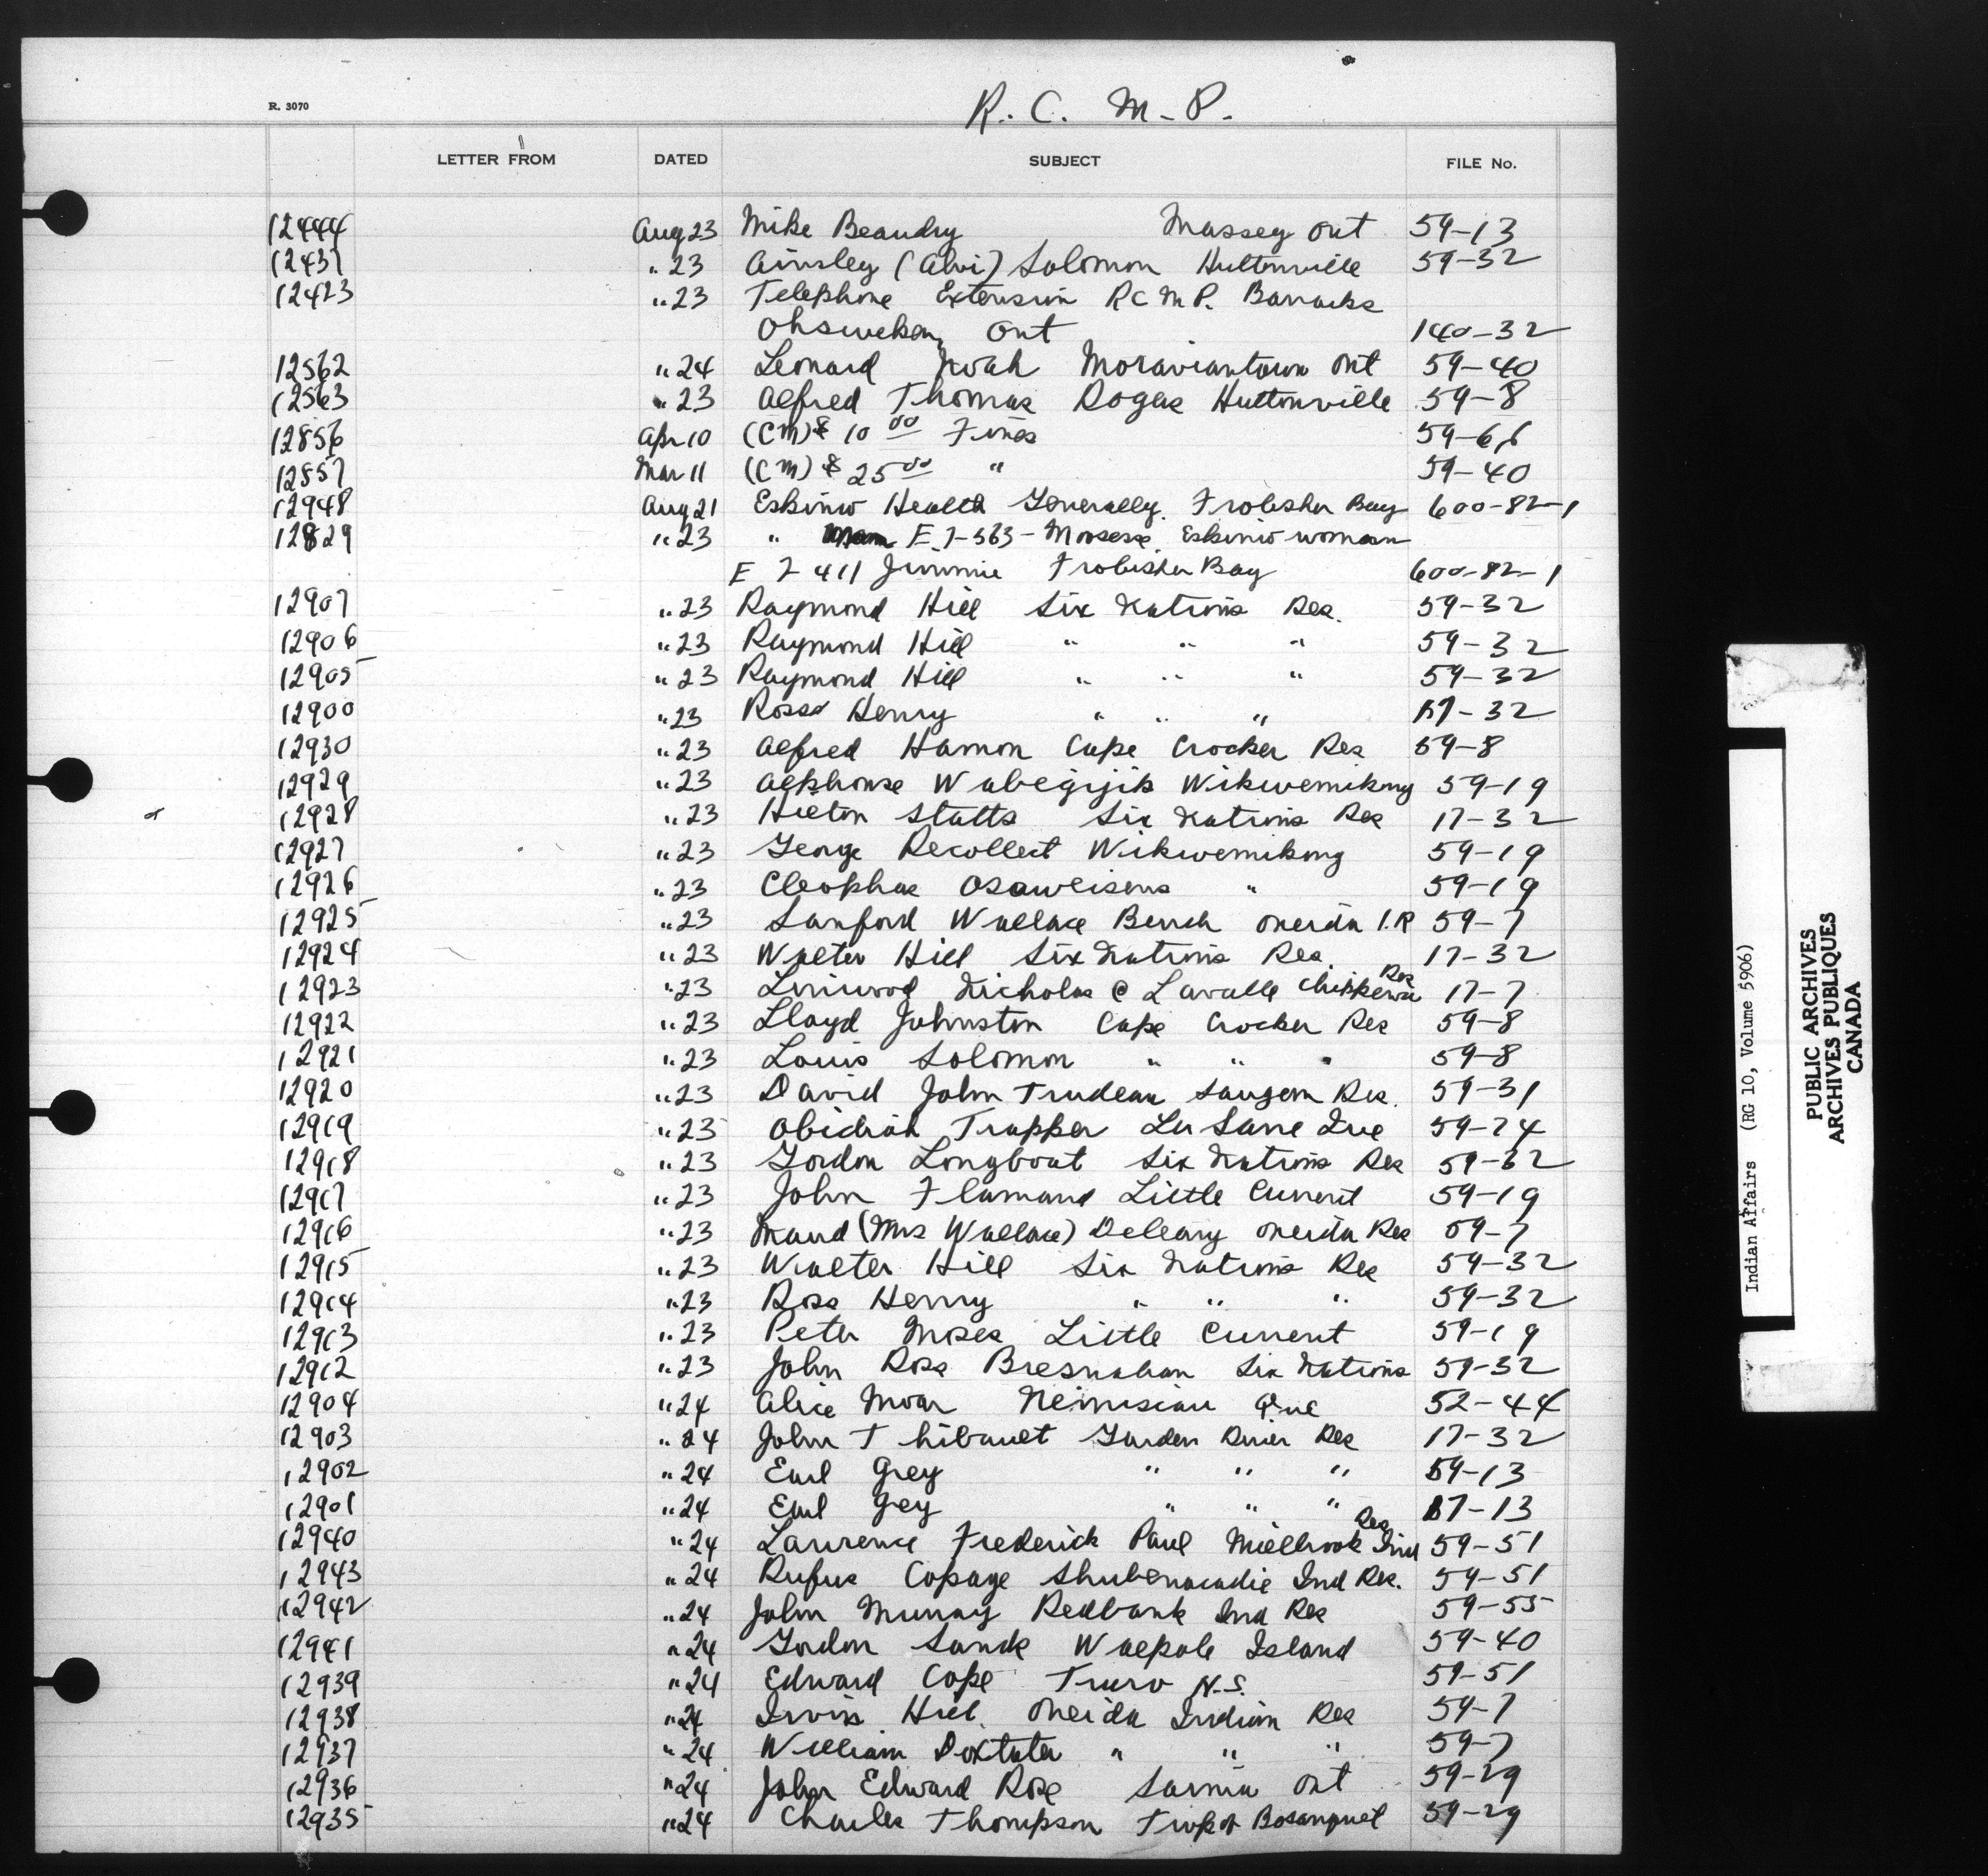 R. C. M. P.
R. 3070
LETTER FROM DATED SUBJECT FILE No.
12444 Aug 23 Mike Beaudry Massey Ont 59-13
12437 " 23 Ainsley (Alvi) Solomon Huttonville 59-32
12423 " 23 Telephone Extension R C M P. Barracks
Ohsweken, Ont 140-32
12562 " 24 Leonard Noah Moraviantown Ont 59-40
12563 " 23 Alfred Thomas Rogers Huttonville 59-8
12856 Apr 10 (CM) $ 10 00 Fines 59-66
12857 Mar 11 (CM) $ 25 00 " 59-40
12948 Aug 21 Eskimo Health Generally Frobisher Bay 600-82-1
12829 " 23 " E.7-563 - Mosese Eskimo woman
E 7 411 Jimmie Frobisher Bay 600-82-1
12907 " 23 Raymond Hill Six Nations Res. 59-32
12906 " 23 Raymond Hill " " " 59-32
12905 " 23 Raymond Hill " " " 59-32
12900 " 23 Ross Henry " " " 17-32
12930 " 23 Alfred Hamon Cape Crocker Res 59-8
12929 " 23 Alphonse Wabegijik Wikwemikong 59-19
12928 " 23 Hilton Statts Six Nations Res 17-32
12927 " 23 George Recollect Wikwemikong 59-19
12926 " 23 Cleophas Osaweisens " 59-19
12925 " 23 Sanford Wallace Bench Oneida I.R 59-7
12924 " 23 Walter Hill Six Nations Res. 17-32
12923 " 23 Linwood Nicholas @ Lavalle Chippewa Res 17-7
12922 " 23 Lloyd Johnston Cape Crocker Res 59-8
12921 " 23 Louis Solomon " " " 59-8
12920 " 23 David John Trudeau Saugeen Res. 59-31
12919 " 23 Obidiah Trapper La Sarre Que 59-24
12918 " 23 Gordon Longboat Six Nations Res 59-32
12917 " 23 John Flamand Little Current 59-19
12916 " 23 Maud (Mrs Wallace) Deleary Oneida Res 59-7
12915 " 23 Walter Hill Six Nations Res 59-32
12914 " 23 Ross Henry " " " 59-32
12913 " 23 Peter Moses Little Current 59-19
12912 " 23 John Ross Bresnahan Six Nations 59-32
12904 " 24 Alice Moar Nemisiau Que 52-44
12903 " 24 John Thibault Garden River Res 17-32
12902 " 24 Earl Grey " " " 59-13
12901 " 24 Earl Grey " " " 17-13
12940 " 24 Lawrence Frederick Paul Millbrook Ind Res 59-51
12943 " 24 Rufus Copage Shubenacadie Ind Res. 59-51
12942 " 24 John Murray Redbank Ind Res 59-55
12941 " 24 Gordon Sands Walpole Island 59-40
12939 " 24 Edward Cope Truro N.S. 59-51
12938 " 24 Irvin Hill. Oneida Indian Res 59-7
12937 " 24 William Doxtater " " " 59-7
12936 " 24 John Edward Rose Sarnia Ont 59-29
12935 " 24 Charles Thompson Twp of Bosanquet 59-29
Indian Affairs (RG 10, Volume 5906)
PUBLIC ARCHIVES
ARCHIVES PUBLIQUES
CANADA